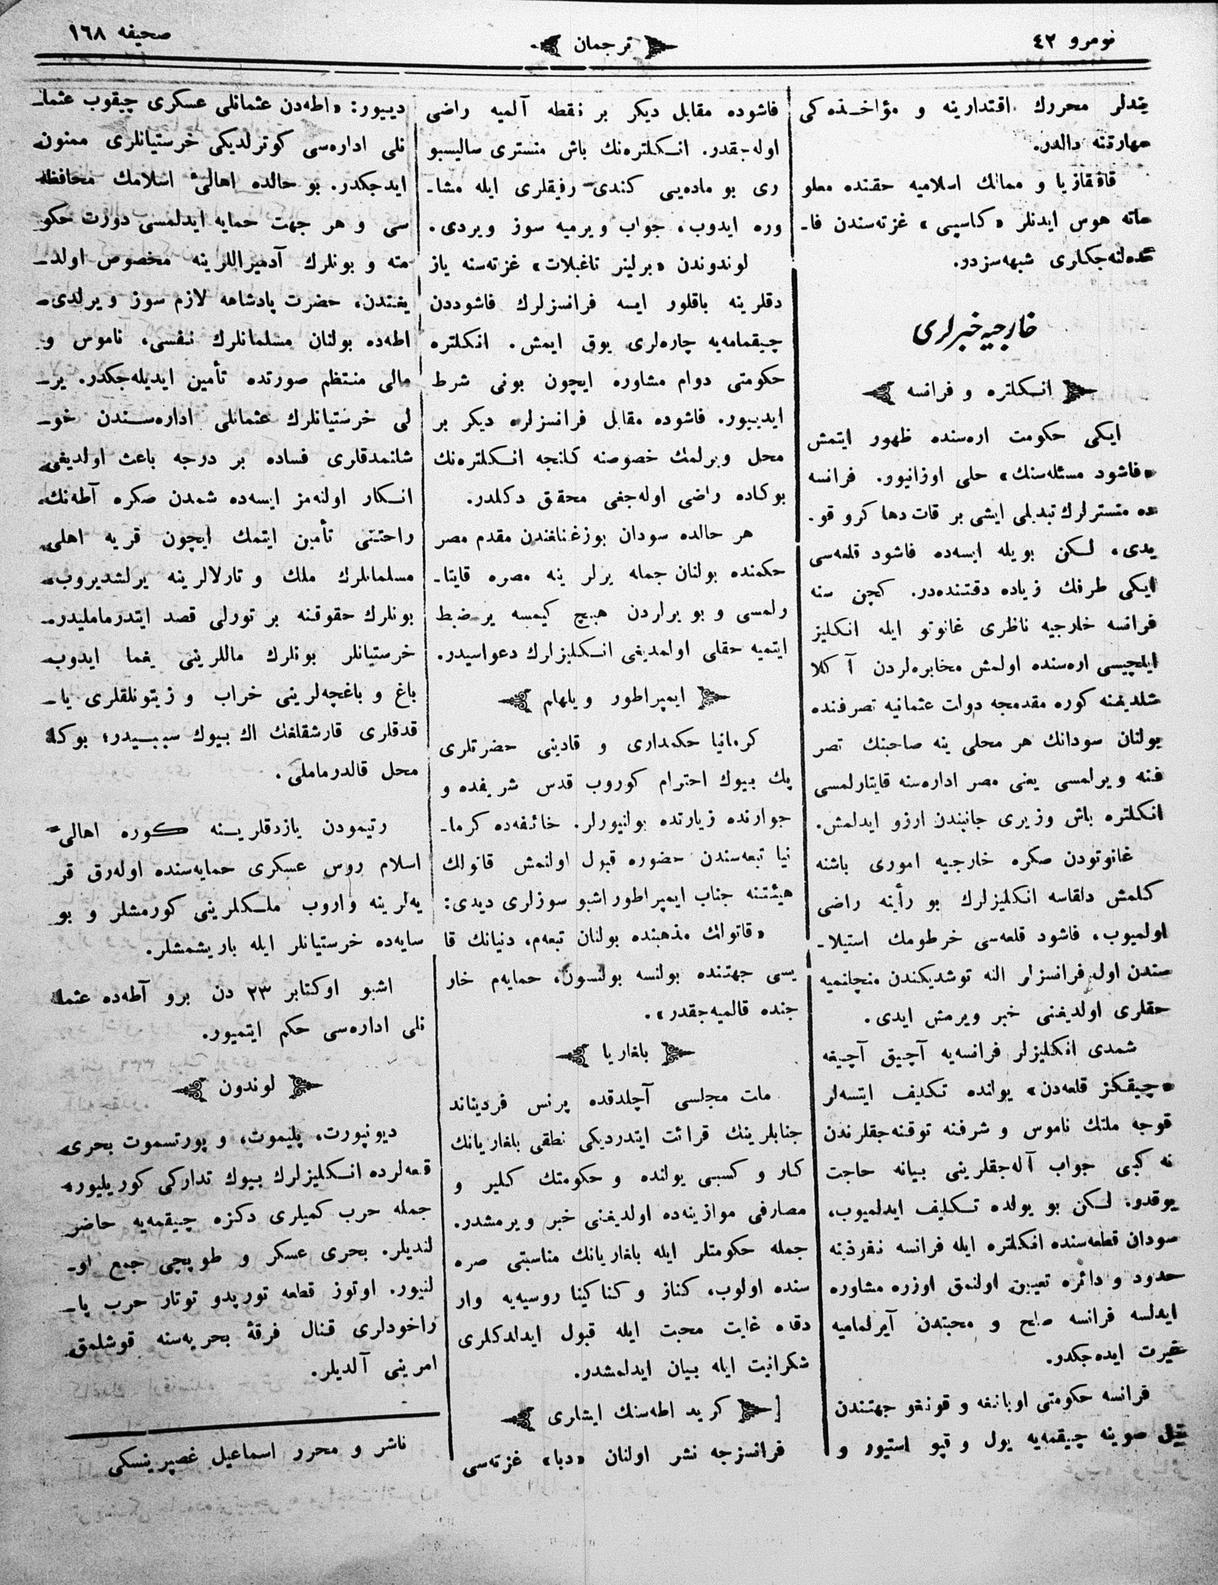 نومرو ٤٢
ترجمان
صحیفه ١٦٨
یتدلر محررك اقتدارینه و مؤاخـذه كی
مهارتنه دالدر.
قافقازیا و ممالك اسلامیه حقنده معلو
ماته هوس ایدنلر «كاسپی» غزته‌سندن فا-
ئده‌لنه‌جكلری شبهه‌سزدو.
خارجیه خبرلری
انـكلتره و فرانسه
ایكی حكومت اره‌سنده ظهور ایتمش
«فاشود مسئله‌سنك» حلی اوزانیور. فرانسه
ده منسترلرك تبدیلی ایشی بر قات دها كرو قو-
یدی، لـكن بویله ایسه‌ده فاشود قلعه‌سی
ایكی طرفك زیاده دقتنده‌در. كچن سنه
فرانسه خارجیه ناظری غانوتو ایله انكلیز
ایلچیسی اره‌سنده اولمش مخابره‌لردن آ كلا
شلدیغنه كوره مقدمجه دولت عثمانیه تصرفنده
بولنان سودانك هر محلی ینه صاحبنك تصر
فنه ویرلمسی یعنی مصر اداره‌سنه قایتارلمسی
انكلتره باش وزیری جانبندن ارزو ایدلمش.
غانوتودن صكره خارجیه اموری باشنه
كلمش دلقاسه انكلیزلرك بو رأینه راضی
اولمیوب، فاشود قلعه‌سی خرطومك استیلا-
سندن اول فرانسزلر النه توشدیكندن منچانمیه
حقلری اولدیغنی خبر ویرمش ایدی.
شمدی انكلیزلر فرانسه‌یه آچیق آچیغه
«چیقكز قلعه‌دن» یولنده تكلیف ایتسه‌لر
قوجه ملتك ناموس و شرفنه توقنه‌جقلرندن
نه كبی جواب آله‌جقلرینی بیانه حاجت
یوقدو. لـكن بو یولده تـكلیف ایدلمیوب،
سودان قطعه‌سنده انكلتره ایله فرانسه نفوذینه
حدود و دائره تعیین اولنمق اوزره مشاوره
ایدلسه فرانسه صلح و محبتدن آیرلمامیه
غیرت ایده‌جكدو.
فرانسه حكومتی اوبانغه و قونغو جهتندن
نیل صوینه چیقمه‌یه یول و قپو استیور و
فاشوده مقابل دیكر بر نقطه آلمیه راضی
اوله‌جقدر. انـكلتره‌نك باش منستری سالیسبو
ری بو ماده‌یی كندی رفیقلری ایله مشا-
وره ایدوب، جواب ویرمیه سوز ویردی.
لوندوندن «برلینر تاغبلات» غزته‌سنه یاز
دقلرینه باقلور ایسه فرانسزلرك فاشوددن
چیقمامه‌یه چاره‌لری یوق ایمش. انكلتره
حكومتی دوام مشاوره ایچون بونی شرط
ایدییور. فاشوده مقابل فرانسزلره دیكر بر
محل ویرلمك خصوصنه كلنجه انـكلتره‌نك
بوكاده راضی اوله‌جغی محقق دكلدر.
هر حالده سودان بوزغناغندن مقدم مصر
حكمنده بولنان جمله یرلر ینه مصره قایتا-
رلمسی و بو یراردن هیچ كیمسه یر ضبط
ایتمیه حقلی اولمدیغی انـكلیزلرك دعواسیدر.
ایمپراطور ویلهام
كرمانیا حكمداری و قادینی حضرتلری
پك بیوك احترام كوروب قدس شریفده و
جوارنده زیارتده بولنیورلر. خائفه‌ده كرما-
نیا تبعه‌سندن حضوره قبول اولنمش قاتولك
هیئتنه جناب ایمپراطور اشبو سوزلری دیدی:
«قاتولك مذهبنده بولنان تبعه‌م، دنیانك قا
یسی جهتنده بولنسه بولنسون، حمایه‌م خار
جنده قالمیه‌جقدر».
بلغاریا
ملت مجلسی آچلدقده پرنس فردیناند
جنابلرینك قرائت ایتدردیكی نطقی بلغاریانك
كار و كسبی یولنده و حكومتك كلیر و
مصارفی موازینه‌ده اولدیغنی خبر ویرمشدر.
جمله حكومتلر ایله بلغاریانك مناسبتی صره
سنده اولوب، كناز و كناكینا روسیه‌یه وار
دقده غایت محبت ایله قبول ایدلدكلری
شكرانیت ایله بیان ایدلمشدر.
كرید اطه‌سنك ایشلری
فرانسزجه نشر اولنان «دبا» غزته‌سی
دییور: «اطه‌دن عثمانلی عسكری چیقوب عثما-
نلی اداره‌سی كوترلدیكی خرستیانلری ممنون
ایدجكدر. بو حالده اهالیٔ اسلامك محافظه
سی و هر جهت حمایه ایدلمسی دورت حكو
مته و بونلرك آدمیراللرینه مخصوص اولد-
یغندن، حضرت پادشاهه لازم سوز ویرلدی-
اطه‌ده بولنان مسلمانلرك نفسی، ناموس و
مالی منتظم صورتده تأمین ایدیله‌جكدر. یر-
لی خرستیانلرك عثمانلی اداره‌سـندن خو-
شانمدقلری فساده بر درجه باعث اولدیغی
انـكار اولنه‌مز ایسه‌ده شمدن صكره آطه‌نك
راحتنی تأمین ایتمك ایچون قریه اهلی
مسلمانلرك ملك و تارلالرینه یرلشدیروب
بونلرك حقوقنه بر تورلی قصد ایتدرماملیدر.
خرستیانلر بونلرك ماللرینی یغما ایدوب
باغ و باغچه‌لرینی خراب و زیتونلقلری یا-
قدقلری قارشقلغك اك بیوك سببـیدر؛ بوكا
محل قالدرماملی.
رتیمودن یازدقلریـنه كوره اهالیٔ
اسلام روس عسكری حمایه‌سنده اوله‌رق قر
یه‌لرینه واروب ملـكلرینی كورمشلر و بو
سایه‌ده خرستیانلر ایله باریشمشلر.
اشبو اوكتابر ٢٣ دن برو آطه‌ده عثما
نلی اداره‌سی حكم ایتمیور.
لوندون
دیونپورت، پلیموث، و پورتسموت بحری
قلعه‌لرده انـكلیزلرك بیوك تداركی كوریلیور،
جمله حرب كمیلری دكزه چیقمه‌یه حاضر
لندیلر. بحری عسكر و طوپچی جمع او-
لنیور. اوتوز قطعه تورپدو توتار حرب پا-
راخودلری قنال فرقهٔ بحریه‌سنه قوشلمق
امرینی آلدیلر.
ناشر و محرر اسماعیل غصپرینسكی